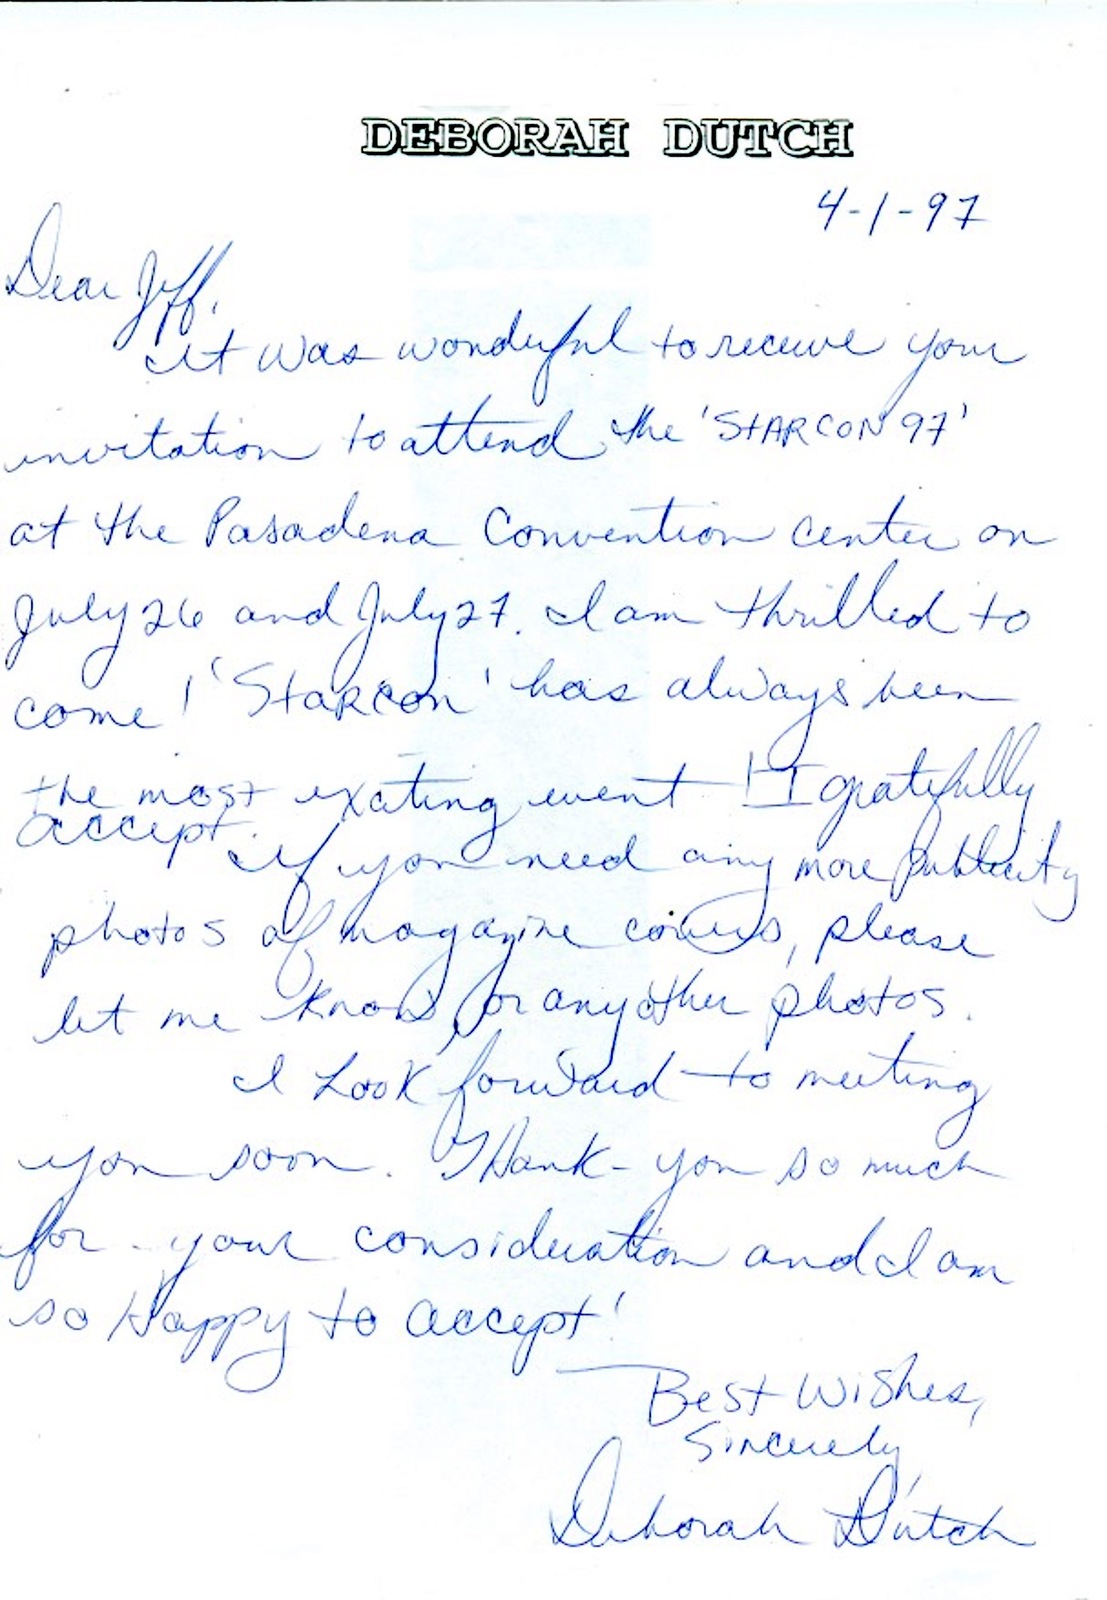 DEBORAH DUTCH
4-1-97
Dear Jeff,
It was wonderful to receive your
invitation to attend the 'STARCON 97'
at the Pasadena Convention center on
July 26 and July 27. I am thrilled to
come! 'Starcon' has always been
the most exciting event! I gratefully
accept.
If you need any more publicity
photos of magazine covers, please
let me know, for any other photos.
I Look forward to meeting
you soon. Thank-you so much
for your consideration and I am
so Happy to accept!
Best Wishes,
Sincerely,
Deborah Dutch